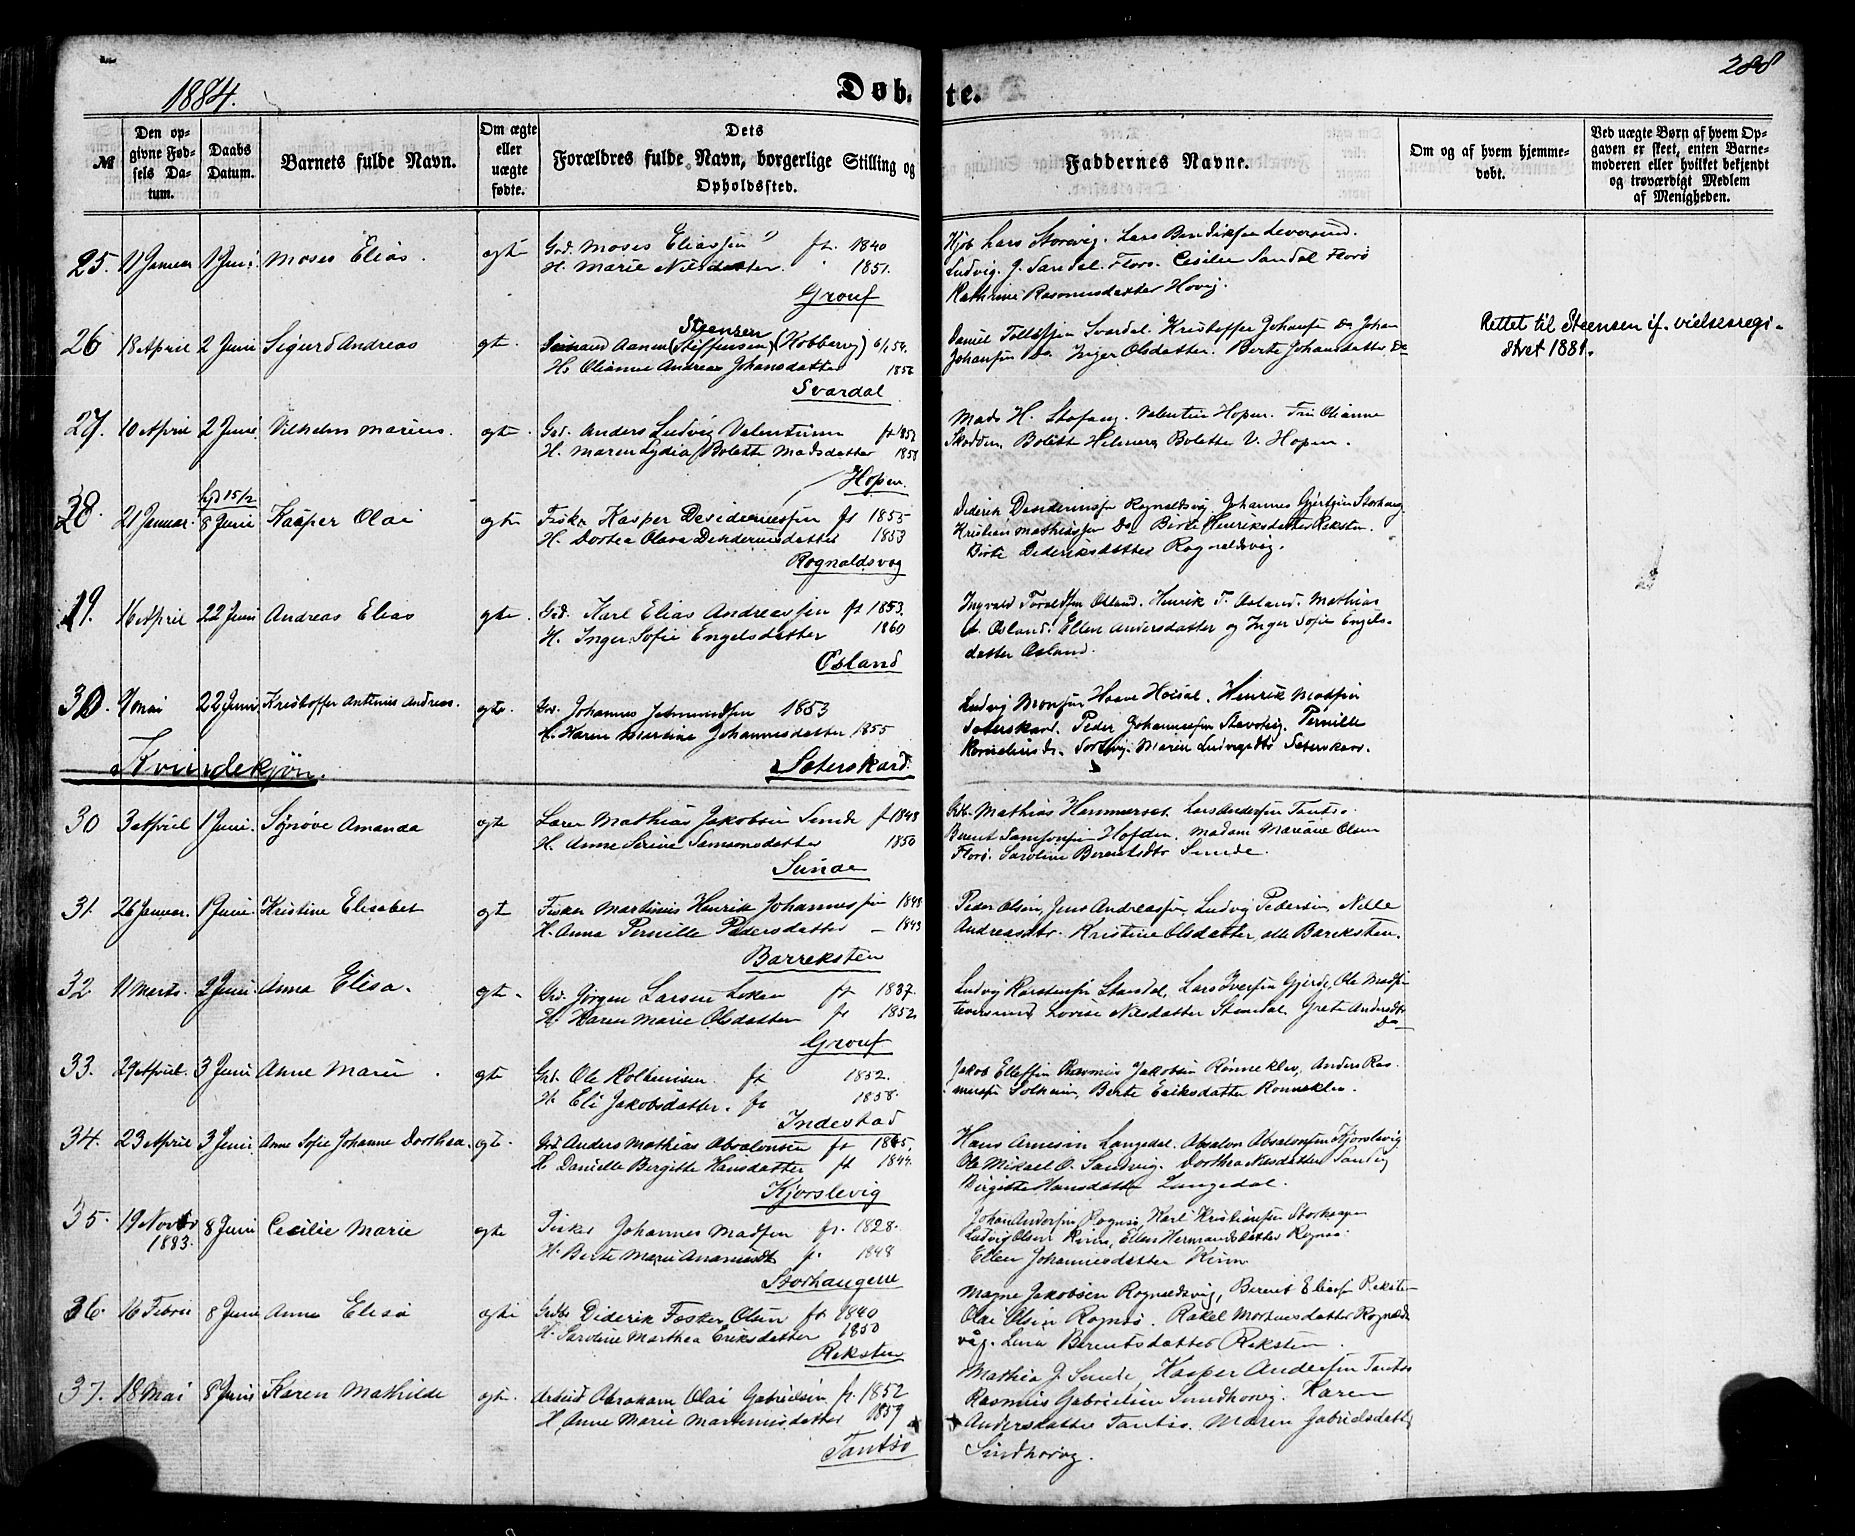 1884.
Døb-te.
288
№
Den opgivne Fødsels Datum.
Daabs Datum.
Barnets fulde Navn.
Om ægte eller uægte fødte.
Dets Forældres fulde Navn, borgerlige Stilling og Opholdssted.
Faddernes Navne.
Om og af hvem hjemmedøbt.
Ved uægte Børn af hvem Opgaven er skeet, enten Barnemoderen eller hvilket bekjendt og troværdigt Medlem af Menigheden.
25. Januar 1 Juni Moses Elias. ægte
Grd. Moses Eliassen ft. 1840
H. Marie Nilsdatter. 1851.
Grouf
Lars Storevig. Lars Bendiksen Leversund.
Ludvig. J. Sandal. Florø. Cesilie Sandal Florø
Kathrine Rasmusdatter Hovig.
26 13 April 2 Juni Sigurd Andreas gte.
Steensen
Aanen (Steffensen) (Kobberv)
H. Olianne Andrea Johansdatter 1856
Svardal
Daniel Svardal. Kristoffer Johansen Do Johan
Johansen Do. Inger Olsdatter. Berte Johansdatter Do
Rettet til Steensen if. vielsesregi-
stret 1881.
27. 10 April 2 Juni Vilhelm Marius. ægte
Grd. Anders Ludvig Valentinsen
H. Maren Lydia Bolette Madsdatter 1858
Hopen.
Mads H. Stafang. Valentin Hopen. Olianne
Skodden, Bolette Helmers Bolette V. Hopen.
28. 21 Januar. 15/2 8 Juni Kasper Olai ægte
Fisker Kasper Desideriussen ft 1855
H. Dortea Olava Desideriusdatter 1853
Rognaldsvog
Diderik Desideriussen Rognaldsvig. Johannes Gjertsen Storhaug
Kristian Mathiassen Do Birte Henriksdatter Reksten.
Birte Dideriksdatter Rognaldsvog.
29. 16 April 22 Juni Andreas Elias gte.
Grd. Karl Elias Andreassen ft 1853.
H. Inger Sofie Engelsdatter 1860
Osland
Ingvald Toraldsen Osland. Henrik T. Osland. Mathias
A. Osland. Ellen Andersdatter og Inger Sofie Engels-
datter Osland.
30. Mai 22 Juni Kristoffer Antinius Andreas. ægte.
Grd. Johannes 1853
H. Karen Martine Johannesdatter 1855
Soterskard.
Ludvig Monsen Hovve. Henrik Madsen
Soterskard. Peder Johannessen Stavøstig. Pernille
Korneliusd. Marie Ludvigsdtr Soterskard.
Kvindekjøn.
30 3 April 1 Juni. Synnøve Amanda ægte
Mathias Jakobsen Sunde f 1848
H. Anne Serine Samsonsdatter 1850
Sunde
Mathias Hammerset. Lars Andersen Tantsø.
Berent Samsonsen Hofden. Madam Mariane Olsen
Florø. Saroline Berentsdtr Sunde.
31. 26 Januar. 1 Juni. Kristine Elisabet ægte
Fisker Martinius Henrik Johannessen 1848
H. Anna Pernille Pedersdatter – 1843
Barreksten
Peder Olsen, Jens Andreassen, Ludvig Pedersen, Nille
Andreasdtr. Kristine Olsdatter, alle Bareksten.
32 Marts. 2 Juni. Anna Elisa. gte.
Grd. Jørgen Larsen ft 1837.
H. Karen Marie Olsdatter ft 1852
Grouf
Ludvig Karstensen Standal, Lars Iversen Gjerde, Ole Madsen
Leversund, Lovise Nilsdatter Standal, Grete Andersdtr
Do
33. 29 April. 3 Juni Anne Marie. gte
Grd. Ole ft 1852.
H. Eli Jakobsdatter. ft 1858.
Indestad
Jakob Ellefsen Rasmus Jakobsen Rønneklev, Anders Ras-
mussen Solheim, Berte Eriksdatter Rønneklev.
34. 23 April 3 Juni. Anne Sofie Johanne Dorthea. ægte.
Grd Anders Mathias Absalonsen ft
H. Danielle Bergitte Hansdatter ft 1844.
Kjorslevig
Hans Arnesen Langedal. Absalon Absalonsen Kjorslevig.
Ole Mikael O. Sandvig. Dorthea Nilsdatter Sandvig
Birgitte Hansdatter Langedal.
35. 19 Novbr 1883. 8 Juni Cecilie Marie ægte
Fisker Johannes Madsen ft. 1828.
H. Berte Marie ft. 1848
Storhaugene
Johan Andersen Rognø, Karl Kristiansen Storhaugen
Ludvig Olsen Kinn, Ellen Hermandsdatter Rognø.
Ellen Johannesdatter Kinn
36. 16 Februar 8 Juni Anne Elisa ægte
Diderik Olsen ft. 1840
H. Saroline Marthea Eriksdatter 1850
Reksten
Magne Jakobsen Rognaldsvig, Berent Eliassen Reksten
Olai Olsen Rognø. Rakel Mortensdatter Rognalds
våg. Lena Berentsdatter Reksten.
37. 18 Mai 8 Juni Karen Mathilde ægte.
Arbeid Abraham Olai Gabrielsen f. 1852
H. Anne Marie Martinusdatter 1859
Tantsø
Mathias J. Sunde, Kasper Andersen Tantsø
Rasmus Gabrielsen Sindhovig. Karen
Andersdatter Tantsø. Maren Gabrielsdatt
Sindhovig.